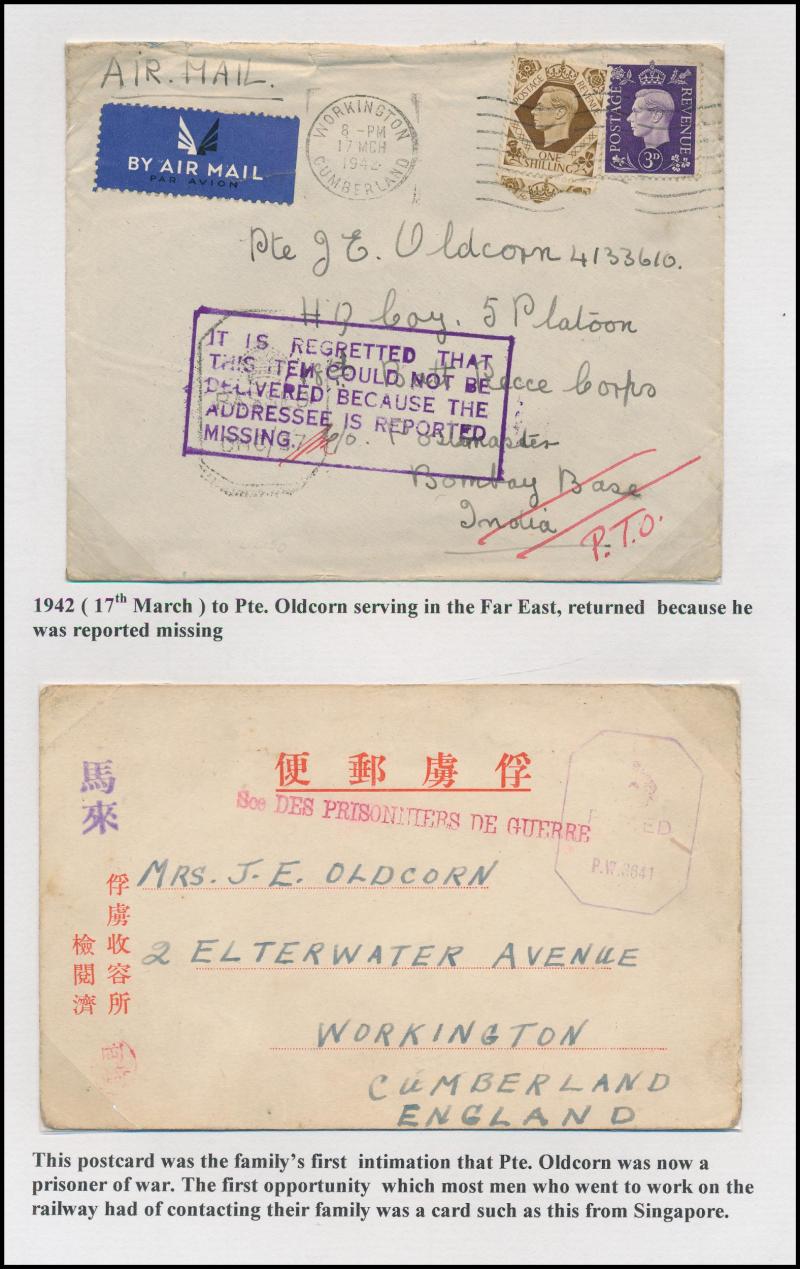 AIR. MAIL.
BY AIR MAIL
PAR AVION
WORKINGTON
8 - PM
17 MCH
1942
CUMBERLAND
POSTAGE REVENUE
ONE SHILLING
POSTAGE REVENUE
3D
Pte J E. Oldcorn 4133610.
HQ Coy. 5 Platoon
18th Batt Recce Corps
c/o. Postmaster
Bombay Base
India
IT IS REGRETTED THAT
THIS ITEM COULD NOT BE
DELIVERED BECAUSE THE
ADDRESSEE IS REPORTED
MISSING.
P.T.O.
1942 ( 17th March ) to Pte. Oldcorn serving in the Far East, returned because he
was reported missing
便郵虜俘
馬來
Sce DES PRISONNIERS DE GUERRE
PASSED
P.W. 3641
俘虜收容所
檢閱濟
MRS. J. E. OLDCORN
2 ELTERWATER AVENUE
WORKINGTON
CUMBERLAND
ENGLAND
This postcard was the family's first intimation that Pte. Oldcorn was now a
prisoner of war. The first opportunity which most men who went to work on the
railway had of contacting their family was a card such as this from Singapore.